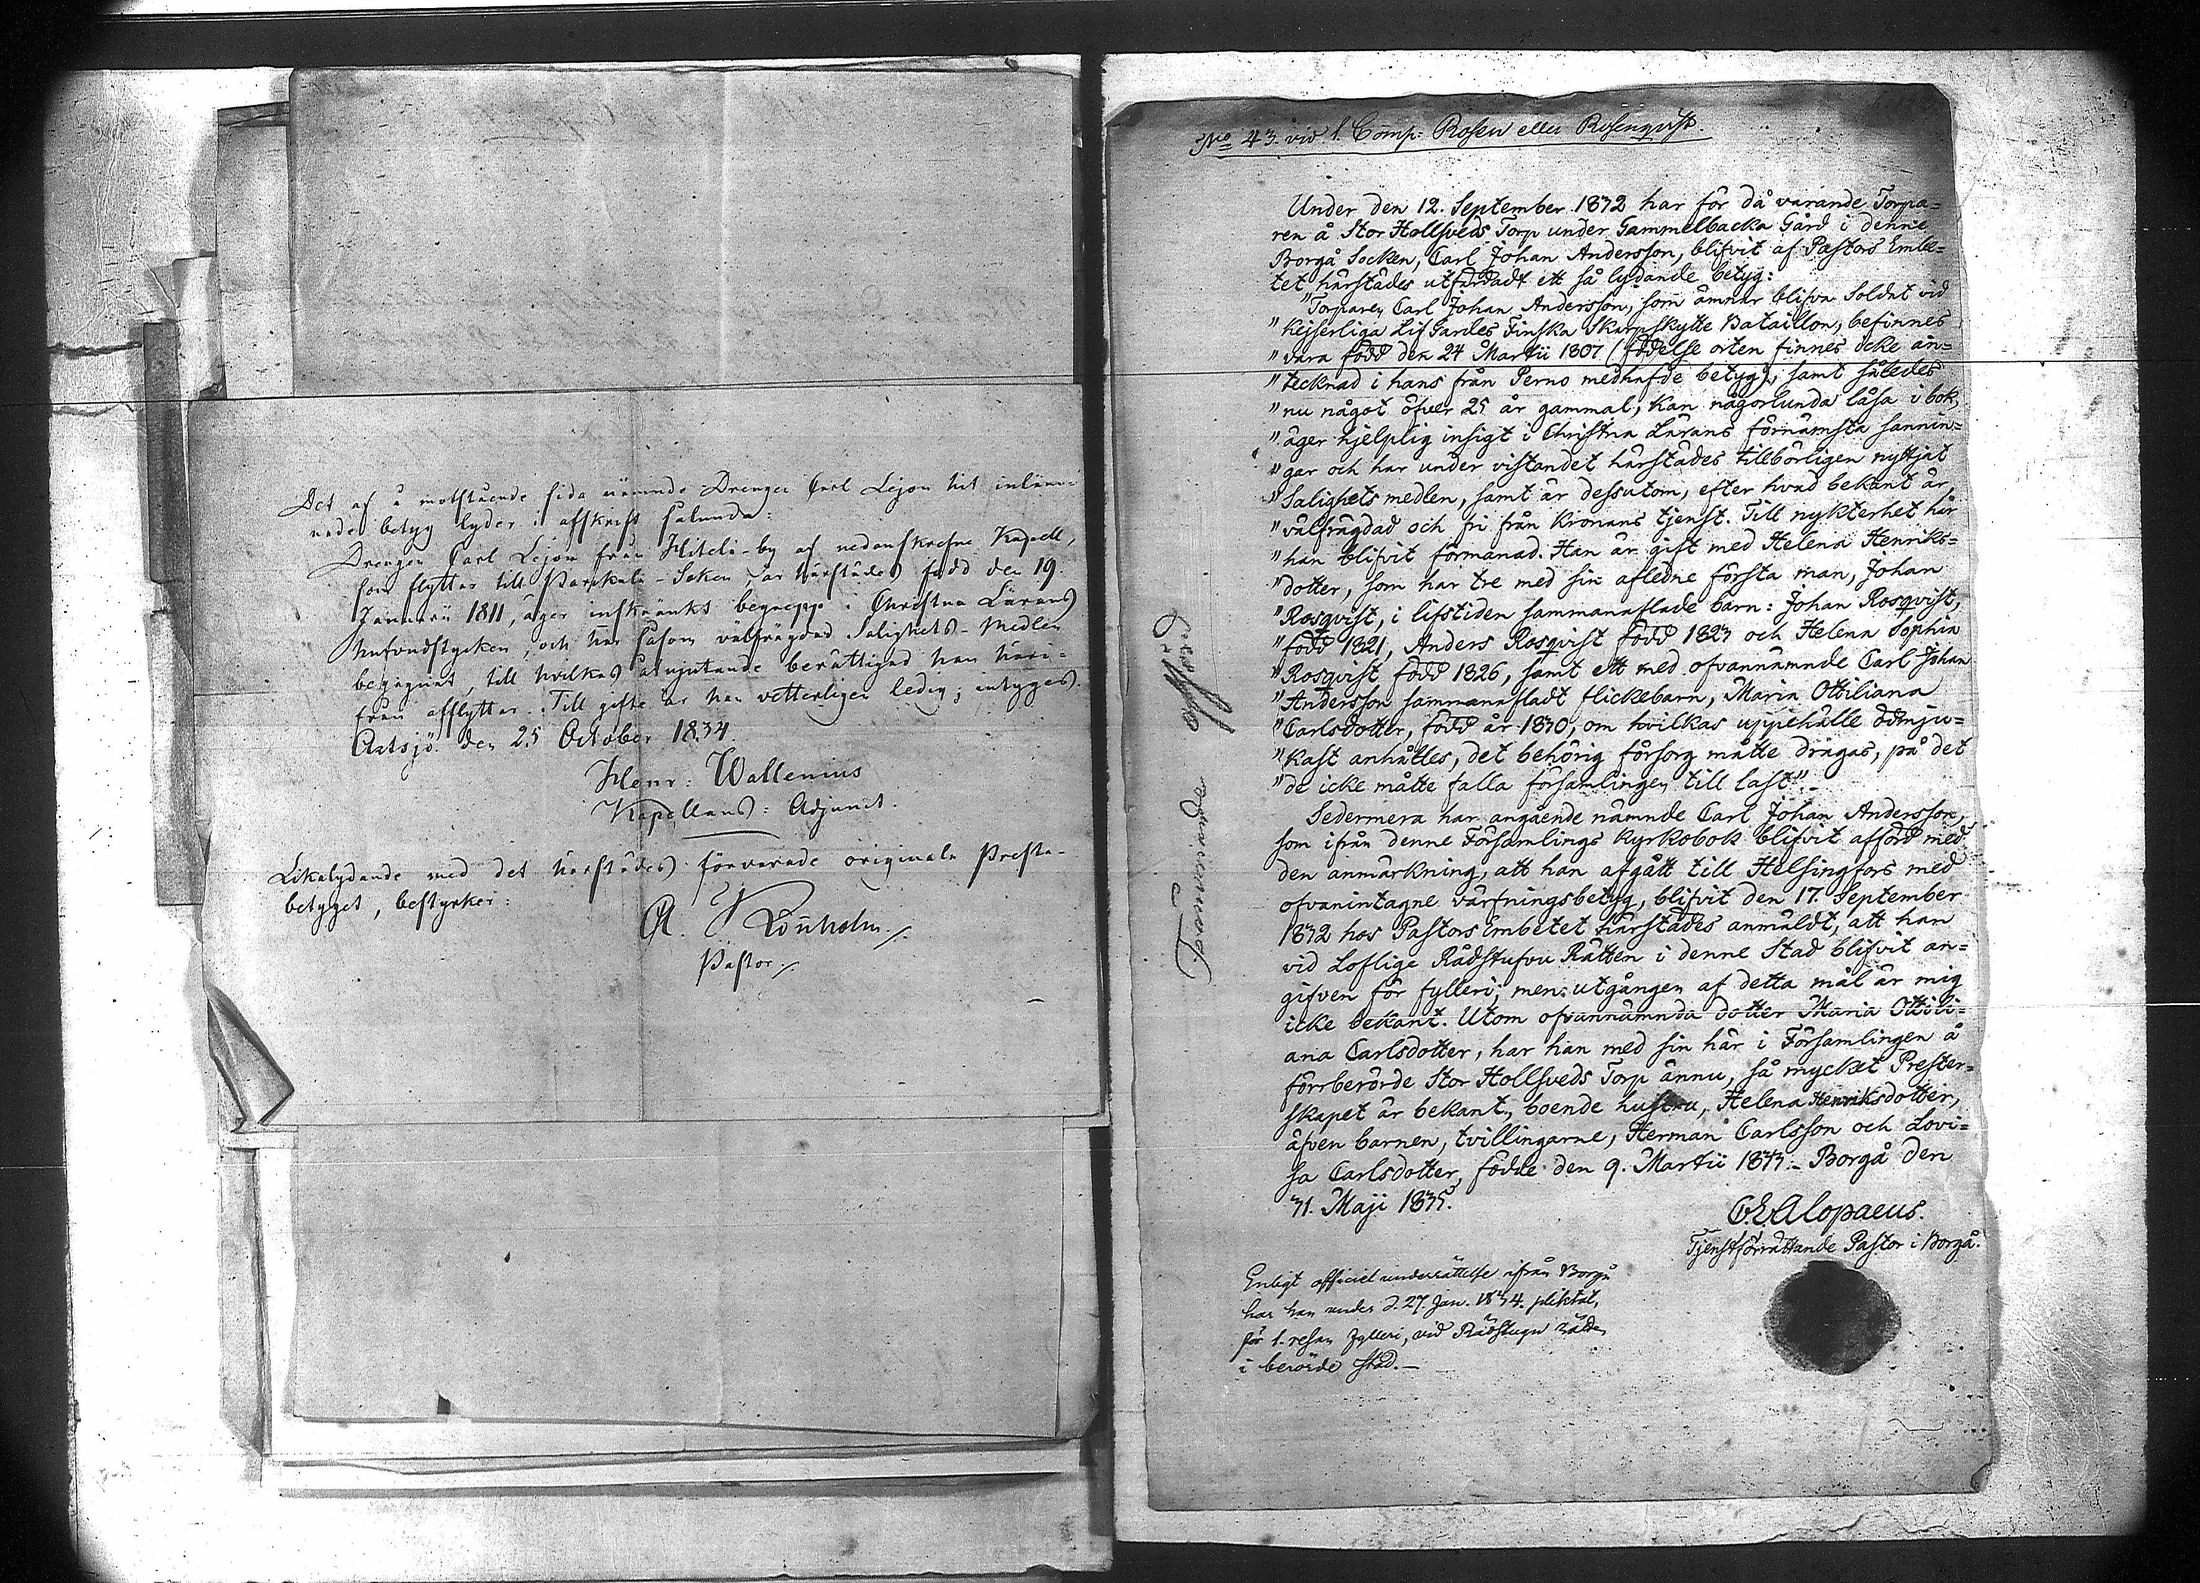 Det af å motstående sida nämnde Drengen Carl Lejon hit inläm-
nade betyg lyder i afskrift sålunda:
Drengen Carl Lejon från Hiteli-by af nedanskrefne Kapell,
som flyttar till Socken, är härstädes född den 19.
Januarii 1811, äger inskränkt begrepp i Christna Lärans
hufvudstycken, och har såsom välfrägdad Salighets-Medlen
begagnat, till hvilkas åtnjutande berättigad han häri-
från afflyttar. Till gifte är han vetterligen ledig; intygas.
Artsjö den 25 October 1834.
Henr: Wallenius
Kapellans: Adjunct.
Likalydande med det härstädes förvarade originala Preste-
betyget, bestyrker:
A.
Pastor.
No 43. vid 1. Comp: Rosen eller Rosenqvist.
Under den 12. September 1832 har för då varande Torpa=
ren å Stor Hollsveds Torp under Gammelbacka Gård i denne
Borgå Socken, Carl Johan Andersson, blifvit af Pastors Embe=
tet härstädes utfärdadt ett så lydande betyg:
"Torparen Carl Johan Andersson, som ämnar blifva Soldat vid
"Kejserliga Lif Gardes Finska Skarpskytte Bataillon, befinnes
"vara född den 24 Martii 1807 (födelse orten finnes icke an=
"tecknad i hans från Perno medhafde betyg), samt således
"nu något öfver 25 år gammal, kan någorlunda läsa i bok,
"äger hjelplig insigt i Christna Lärans förnämsta sannin=
"gar och har under vistandet härstädes tillbörligen nyttjat
"Salighets medlen, samt är dessutom, efter hvad bekant är,
"välfrägdad och fri från Kronans tjenst. Till nykterhet har
"han blifvit förmanad. Han är gift med Helena Henriks=
"dotter, som har tre med sin aflidne första man, Johan
"Rosqvist, i lifstiden sammanaflade barn: Johan Rosqvist,
"född 1821, Anders Rosqvist född 1823 och Helena Sophia
"Rosqvist född 1826, samt ett med ofvannämnde Carl Johan
"Andersson sammanafladt flickebarn, Maria Ottiliana
"Carlsdotter, född år 1830, om hvilkas uppehälle ödmju=
"kast anhålles, det behörig försorg måtte dragas, på det
"de icke måtte falla församlingen till last".-
Sedermera har angående nämnde Carl Johan Andersson,
som ifrån denne Församlings kyrkobok blifvit afförd med
den anmärkning, att han afgått till Helsingfors med
ofvanintagne värfningsbetyg, blifvit den 17. September
1832 hos Pastors Embetet härstädes anmäldt, att han
vid Loflige Rådstufvu Rätten i denne Stad blifvit an=
gifven för fylleri; men utgången af detta mål är mig
icke bekant. Utom ofvannämnda dotter Maria Ottili=
ana Carlsdotter, har han med sin här i Församlingen å
förrberörde Stor Hollsveds Torp ännu, så mycket Prester=
skapet är bekant, boende hustru, Helena Henriksdotter,
äfven barnen, tvillingarne, Herman Carlsson och Lovi=
sa Carlsdotter, födde den 9. Martii 1833.- Borgå den
31. Maji 1835.
C.E. Alopaeus.
Tjenstförrättande Pastor i Borgå.
Enligt officiel underrättelse ifrån Borgå
har han under d. 27. Jan. 1834. pliktat,
för 1. resan fylleri, vid Rådstugu rätten
i berörde stad.-